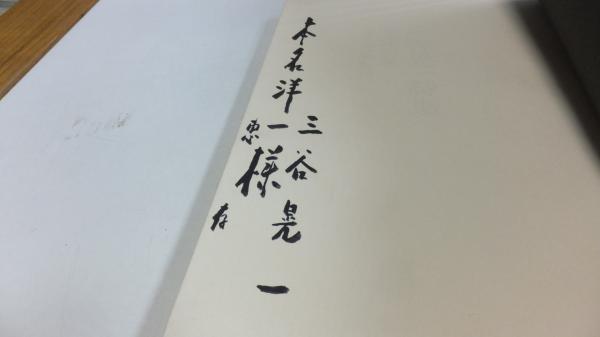 三谷晃一
本名洋一様
恵存